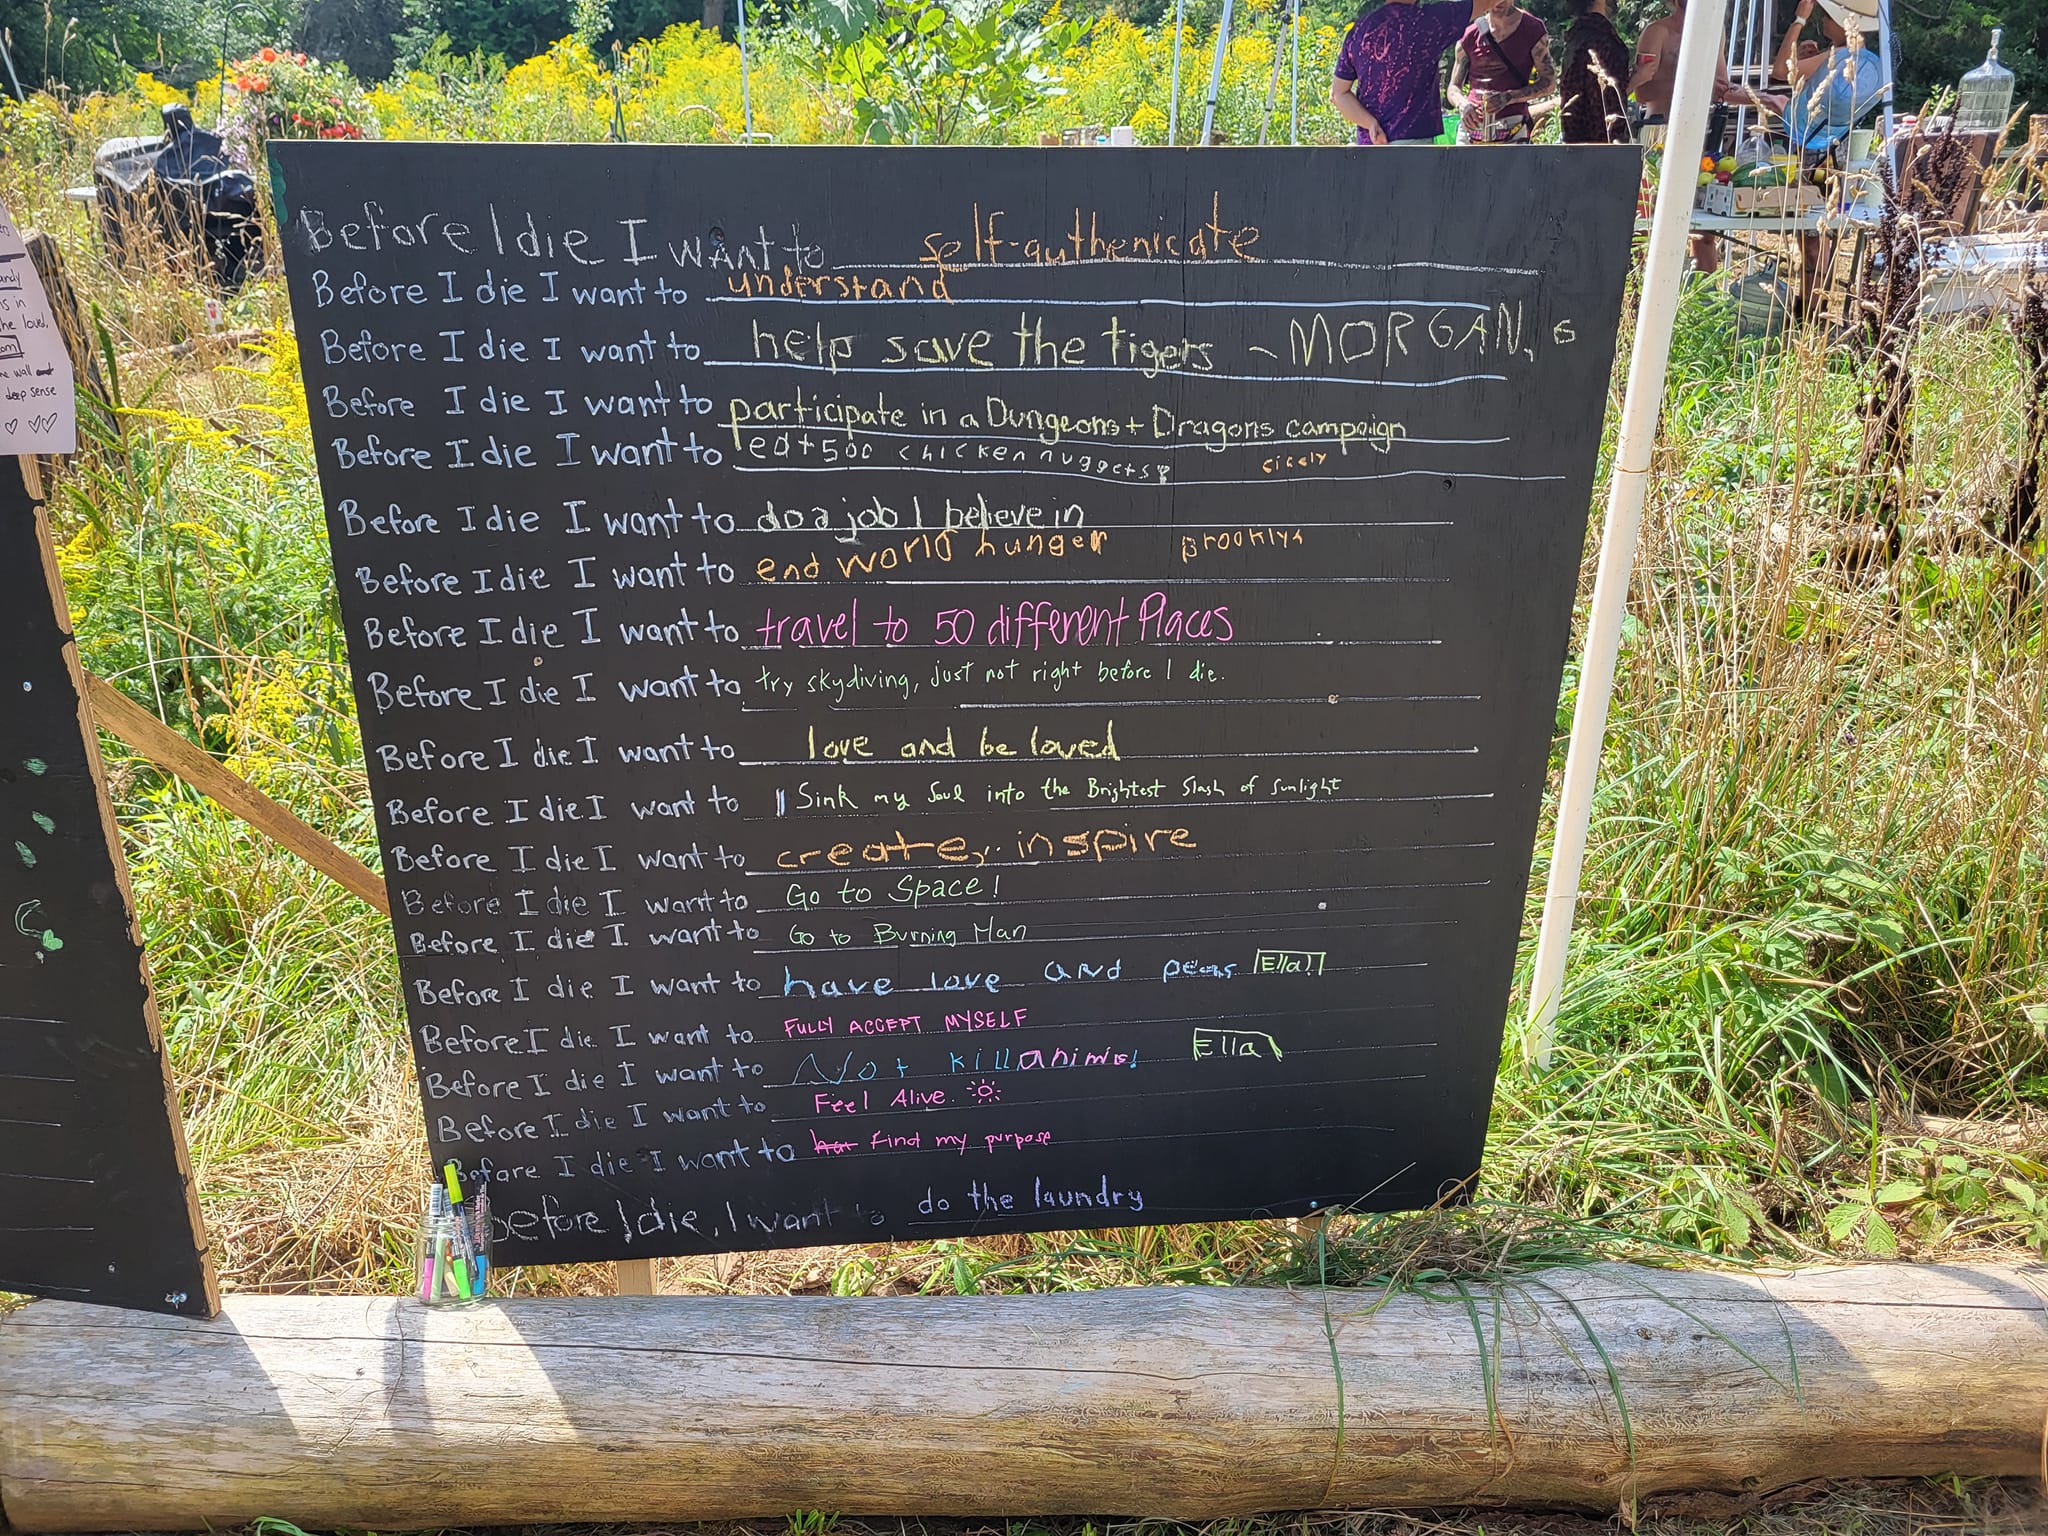 ers
andy
ns in
the loved,
om
he wall
deep sense
Before I die I want to self-authenicate
Before I die I want to understand
Before I die I want to help save the tigers - MORGAN. 6
Before I die I want to participate in a Dungeons + Dragons campaign
Before I die I want to eat 500 chicken nuggets cicely
Before I die I want to do a job I believe in
Before I die I want to end world hunger brooklyn
Before I die I want to travel to 50 different Places
Before I die I want to try skydiving, just not right before I die.
Before I die I want to love and be loved
Before I die I want to Sink my Soul into the Brightest Slash of Sunlight
Before I die I want to create, inspire
Before I die I want to Go to Space!
Before I die I want to Go to Burning Man
Before I die I want to have love and peas Ella!
Before I die I want to FULLY ACCEPT MYSELF
Before I die I want to Not kill animls! Ella
Before I die I want to Feel Alive.
Before I die I want to Find my purpose
Before I die, I want to do the laundry